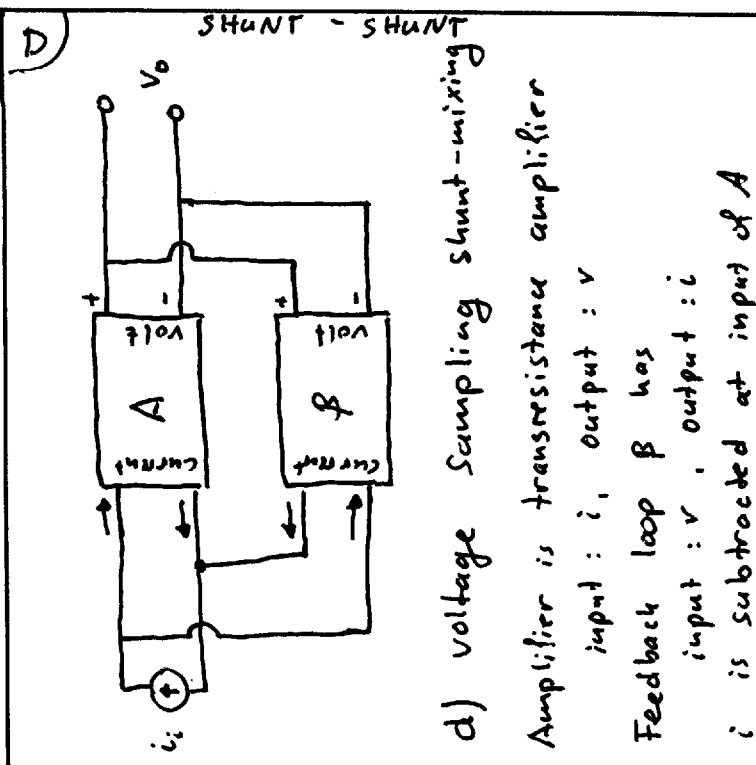 D
SHUNT - SHUNT
Vo
+ -
volt
A
current
+ -
volt
β
current
ii
+
d) voltage sampling shunt-mixing
Amplifier is transresistance amplifier
input : i, output : v
Feedback loop β has
input : v , output : i
i is subtracted at input of A